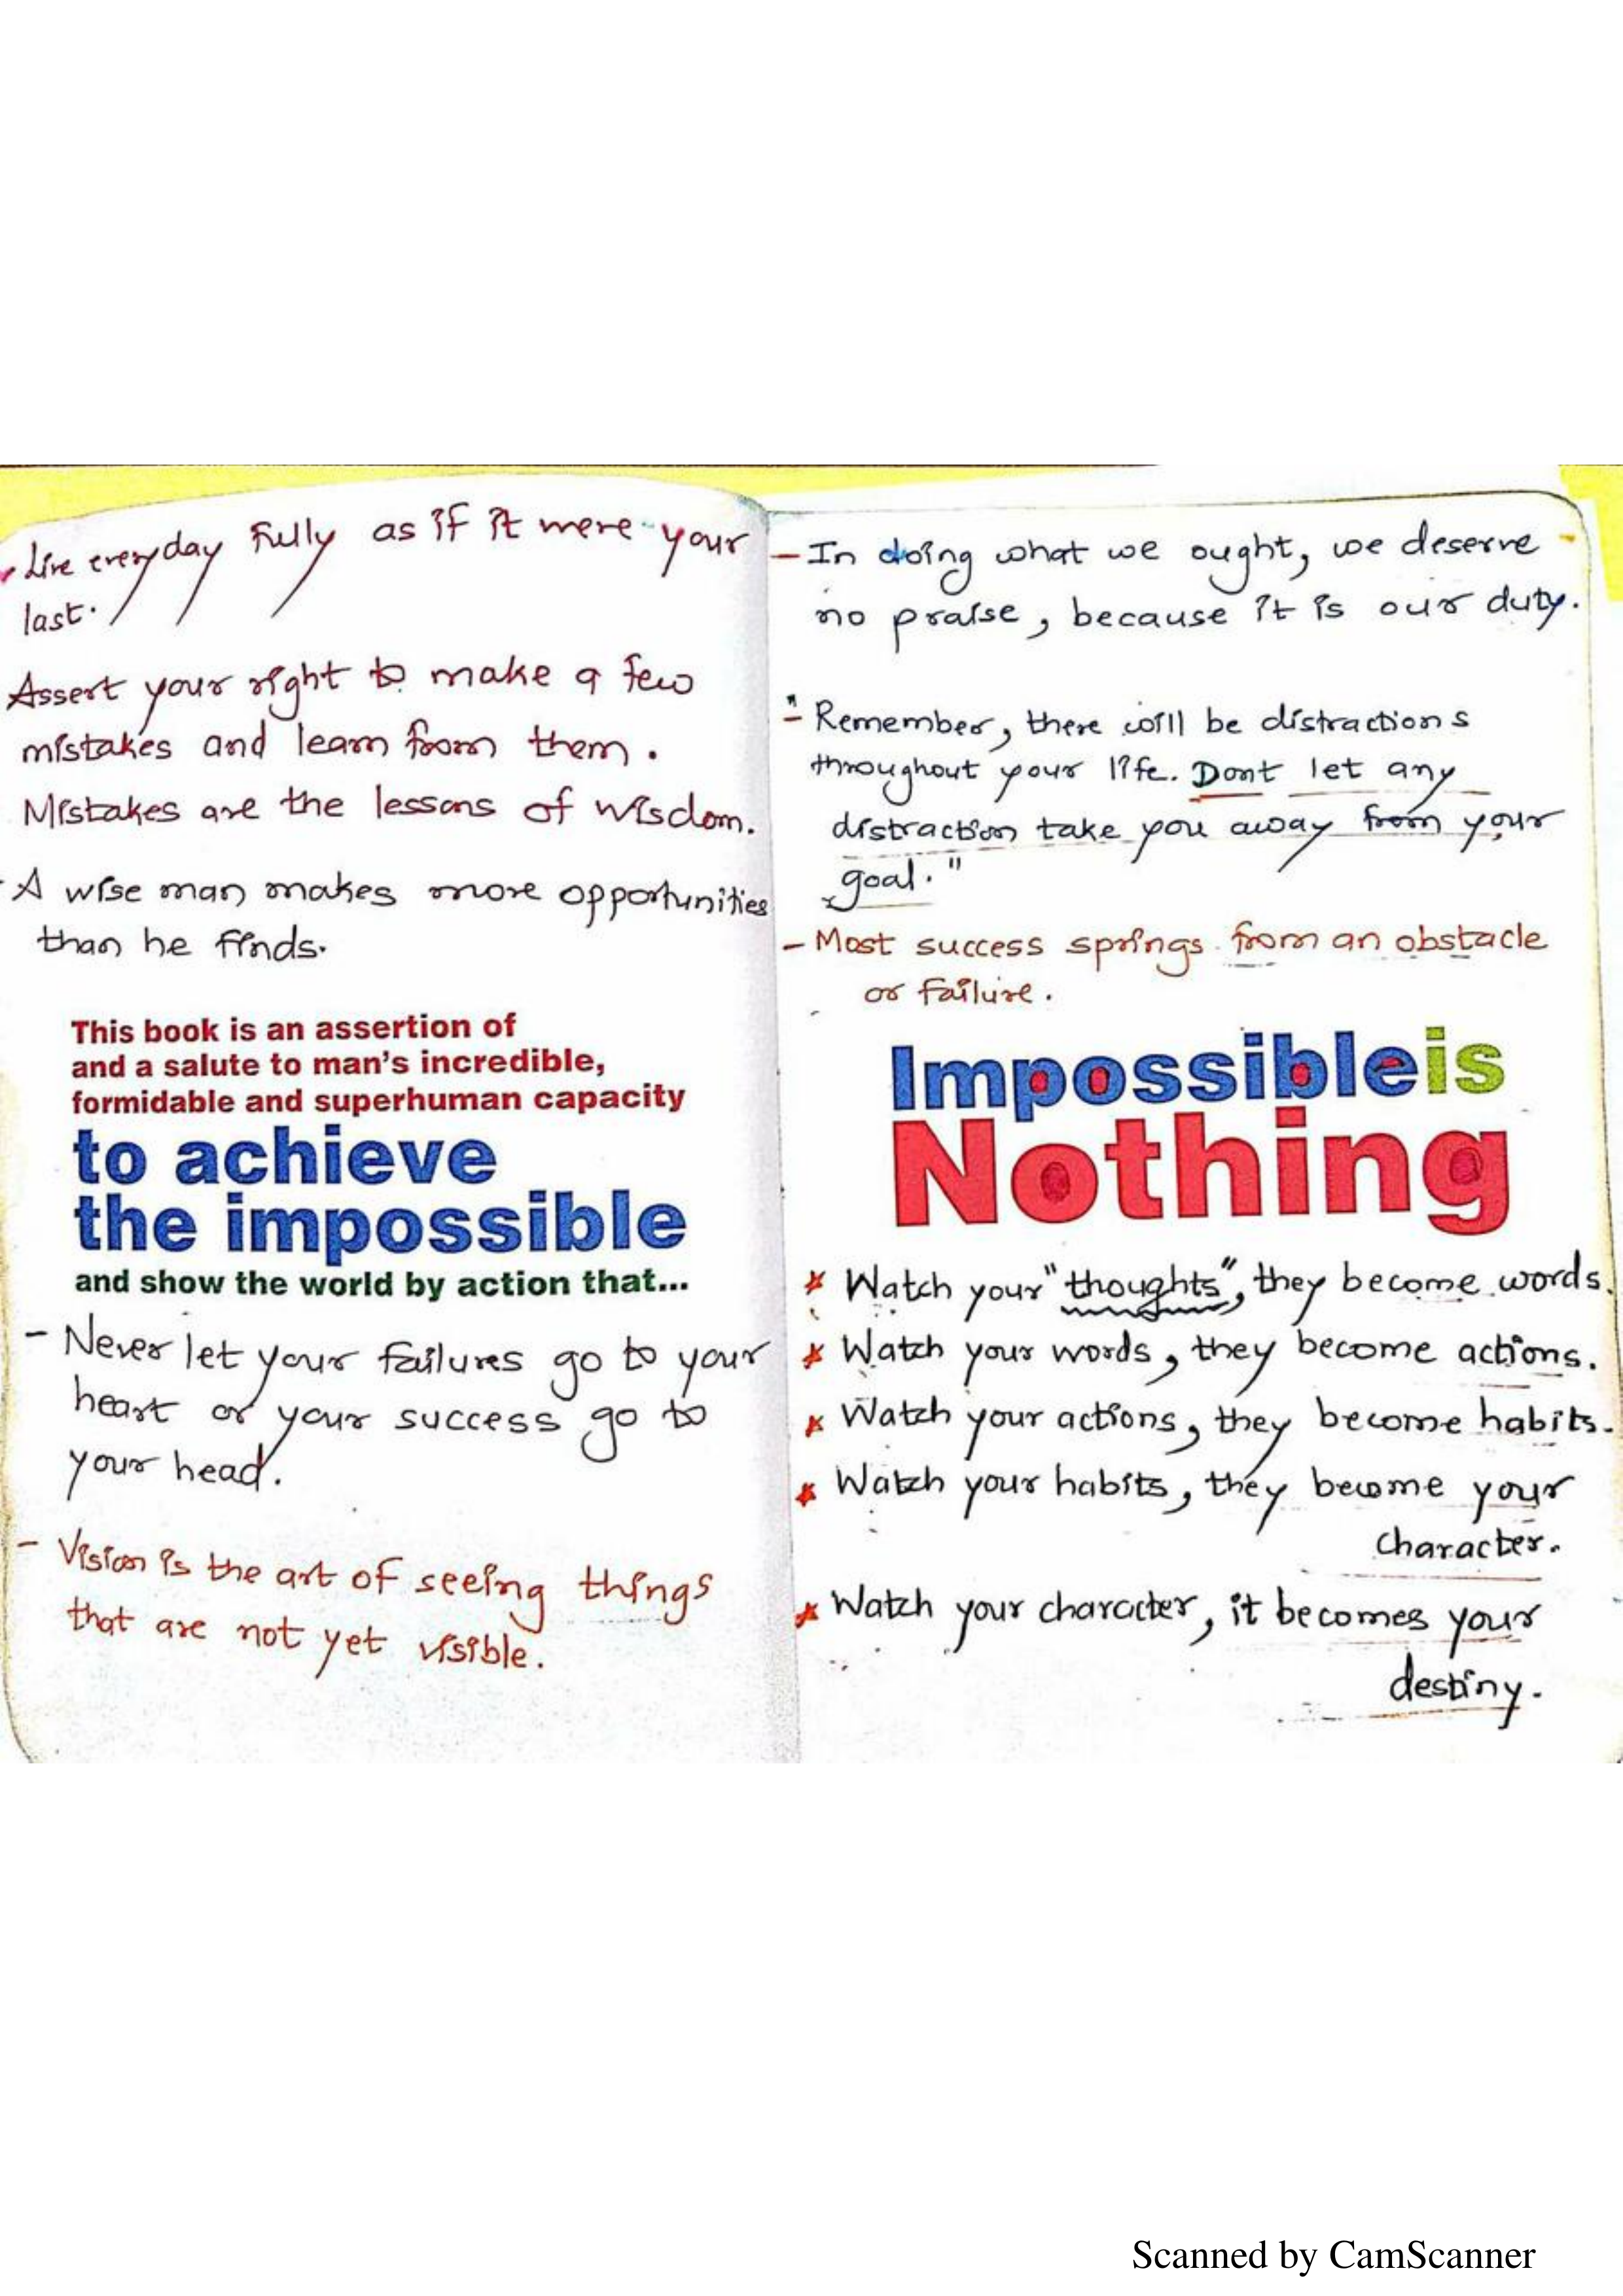 Live everyday fully as if it were your
last.
Assert your right to make a few
mistakes and learn from them.
Mistakes are the lessons of wisdom.
- A wise man makes more opportunities
than he finds.
This book is an assertion of
and a salute to man's incredible,
formidable and superhuman capacity
to achieve
the impossible
and show the world by action that...
- Never let your failures go to your
heart or your success go to
your head.
- Vision is the art of seeing things
that are not yet visible.
- In doing what we ought, we deserve
no praise, because it is our duty.
- "Remember, there will be distractions
throughout your life. Dont let any
distraction take you away from your
goal."
- Most success springs from an obstacle
or failure.
Impossible is
Nothing
* Watch your "thoughts", they become words.
* Watch your words, they become actions.
* Watch your actions, they become habits.
* Watch your habits, they become your
character.
* Watch your character, it becomes your
destiny.
Scanned by CamScanner